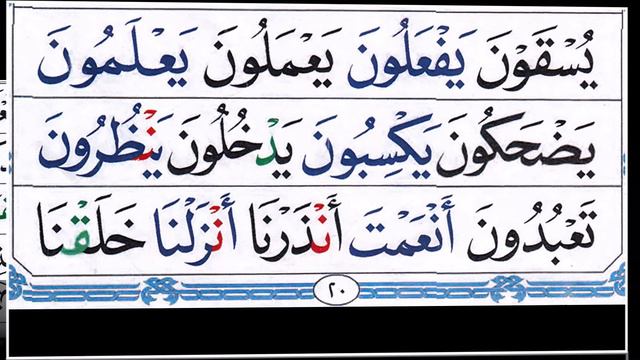 يُسْقَوْنَ يَفْعَلُونَ يَعْمَلُونَ يَعْلَمُونَ
يَضْحَكُونَ يَكْسِبُونَ يَدْخُلُونَ يَنْظُرُونَ
تَعْبُدُونَ أَنْعَمْتَ أَنْذَرْنَا أَنْزَلْنَا خَلَقْنَا
٢٠